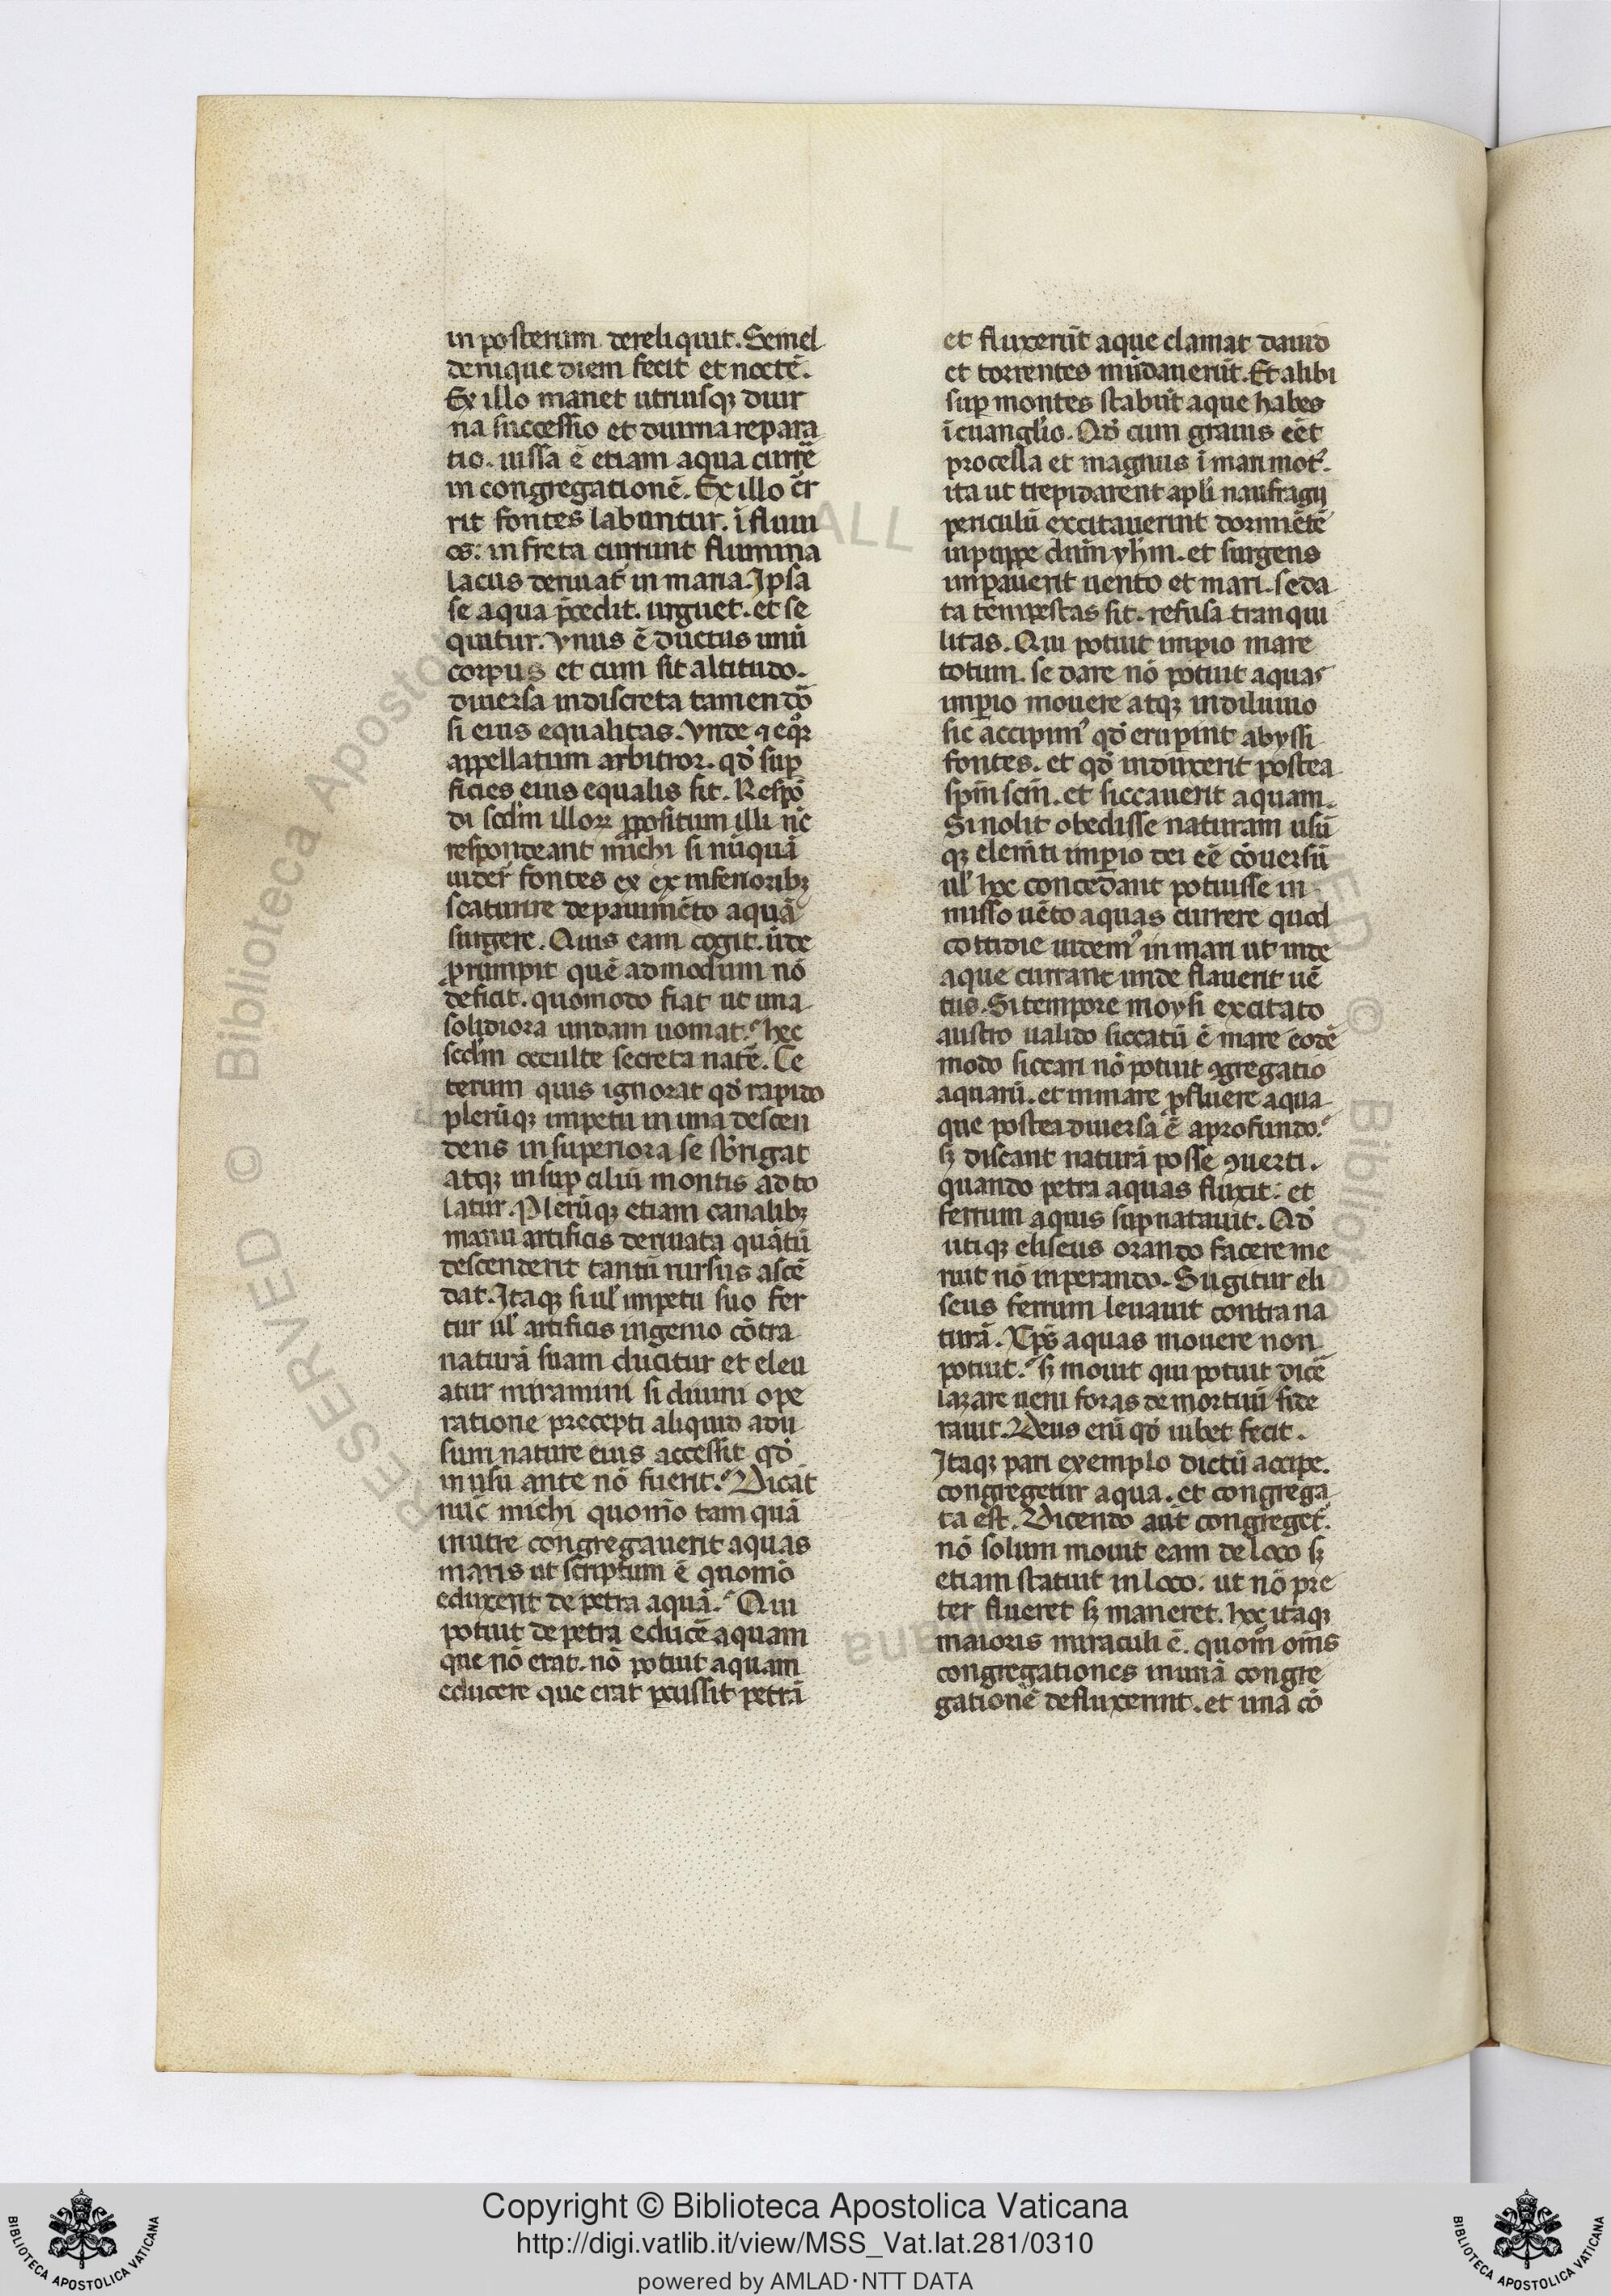 in posterum dereliquit. Semel
denique diem fecit et noctē.
Ex illo manet utriusqꝫ diur
na successio et diurna repara
tio. iussa ē etiam aqua currē
in congregationē. Ex illo c̄r
rit fontes labuntur. ī flum
es: in freta currunt flumina
lacus deriuat᷑ in maria. Ipsa
se aqua p̄cedit. urguet. et se
quitur. Vnus ē ductus unū
corpus et cum sit altitudo.
diuersa indiscreta tamen dō
si eius equalitas. Vnde ⁊ eqꝛ
appellatum arbitror. qd̓ suꝑ
ficies eius equalis sit. Respō
di scdm̄ illoꝝ ꝓpositum illi nc̄
respondeant michi si nūquā
uider̄ fontes ex ex inferioribꝫ
scaturire de pauimēto aquā
surgere. Quis eam cogit. ūde
ꝓrumpit quē admodum nō
deficit. quomodo fiat ut una
solidiora undam uomat. hec
scdm̄ occulte secreta natē. Ce
terum quis ignorat qd̓ rapido
plerūqꝫ impetu in una descen
dens in superiora se sb̄rigat
atqꝫ in suꝑciliū montis ad to
latur. Plerūqꝫ etiam canalibꝫ
manu artificis deriuata quātū
descenderit tantū rursus ascē
dat. Itaqꝫ si ul̓ impetu suo fer
tur ul̓ artificis ingenio cōtra
naturā suam ducitur et eleu
atur miramini si diuini ope
ratione precepti aliquid adu
sum nature eius accessit qd̓
in usu ante nō fuerit. Dicāt
nūc michi quomō tam quā
in utre congregauerit aquas
maris ut scriptum ē quomō
eduxerit de petra aquā. Qui
potuit de petra educē aquam
que nō erat. nō potuit aquam
educere que erat ꝑcussit petrā
et fluxerūt aque clamat dauid
et torrentes inūdauerūt. Et alibi
suꝑ montes stabūt aque habes
ī euanglio. Qd̓ cum grauis eēt
procella et magnus ī mari mot᷑.
ita ut trepidarent apli naufragij
periculū excitauerint dormiētē
in puppe dn̄m yhm̄. et surgens
imꝑauerit uento et mari. seda
ta tempestas sit. refusa tranqui
litas. Qui potuit imꝑio mare
totum. se dare nō potuit aquas
imꝑio mouere atqꝫ in diluuio
sic accipimꝰ qd̓ erupint abyssi
fontes. et qd̓ induxerit postea
spm̄ scm̄. et siccauerit aquam.
Si nolit obedisse naturam usū
qꝫ elemti imꝑio dei eē cōuersū
ul̓ hoc concedant potuisse in
misso uēto aquas currere quod
cottidie uidemꝰ in mari ut inde
aque currant unde flauerit uē
tus. Si tempore moysi excitato
austro ualido siccatū ē mare eodē
modo siccari nō potuit ꝯgregatio
aquarū. et in mare ꝓfluere aqua
que postea diuersa ē a profundo.
sꝫ discant naturā posse ꝯuerti.
quando petra aquas fluxit: et
ferrum aquis suꝑnatauit. Qd̓
utiqꝫ eliseus orando facere me
ruit nō inperando. Si igitur eli
seus ferrum leuauit contra na
turā. Xp̄s aquas mouere non
potuit. sꝫ mouit qui potuit dicē
lazare ueni foras de mortuū fide
rauit. Deus eni qd̓ iubet fecit.
Itaqꝫ pari exemplo dictū accipe.
congregetur aqua. et congrega
ta est. Dicendo aūt congreget᷑.
nō solum mouit eam de loco sꝫ
etiam statuit in loco. ut nō pre
ter flueret sꝫ maneret. hoc itaqꝫ
maioris miraculi ē. quom̄ om̄s
congregationes in unā congre
gationē defluxerint. et una cō
Copyright © Biblioteca Apostolica Vaticana
http://digi.vatlib.it/view/MSS_Vat.lat.281/0310
powered by AMLAD·NTT DATA
BIBLIOTECA APOSTOLICA VATICANA
BIBLIOTECA APOSTOLICA VATICANA